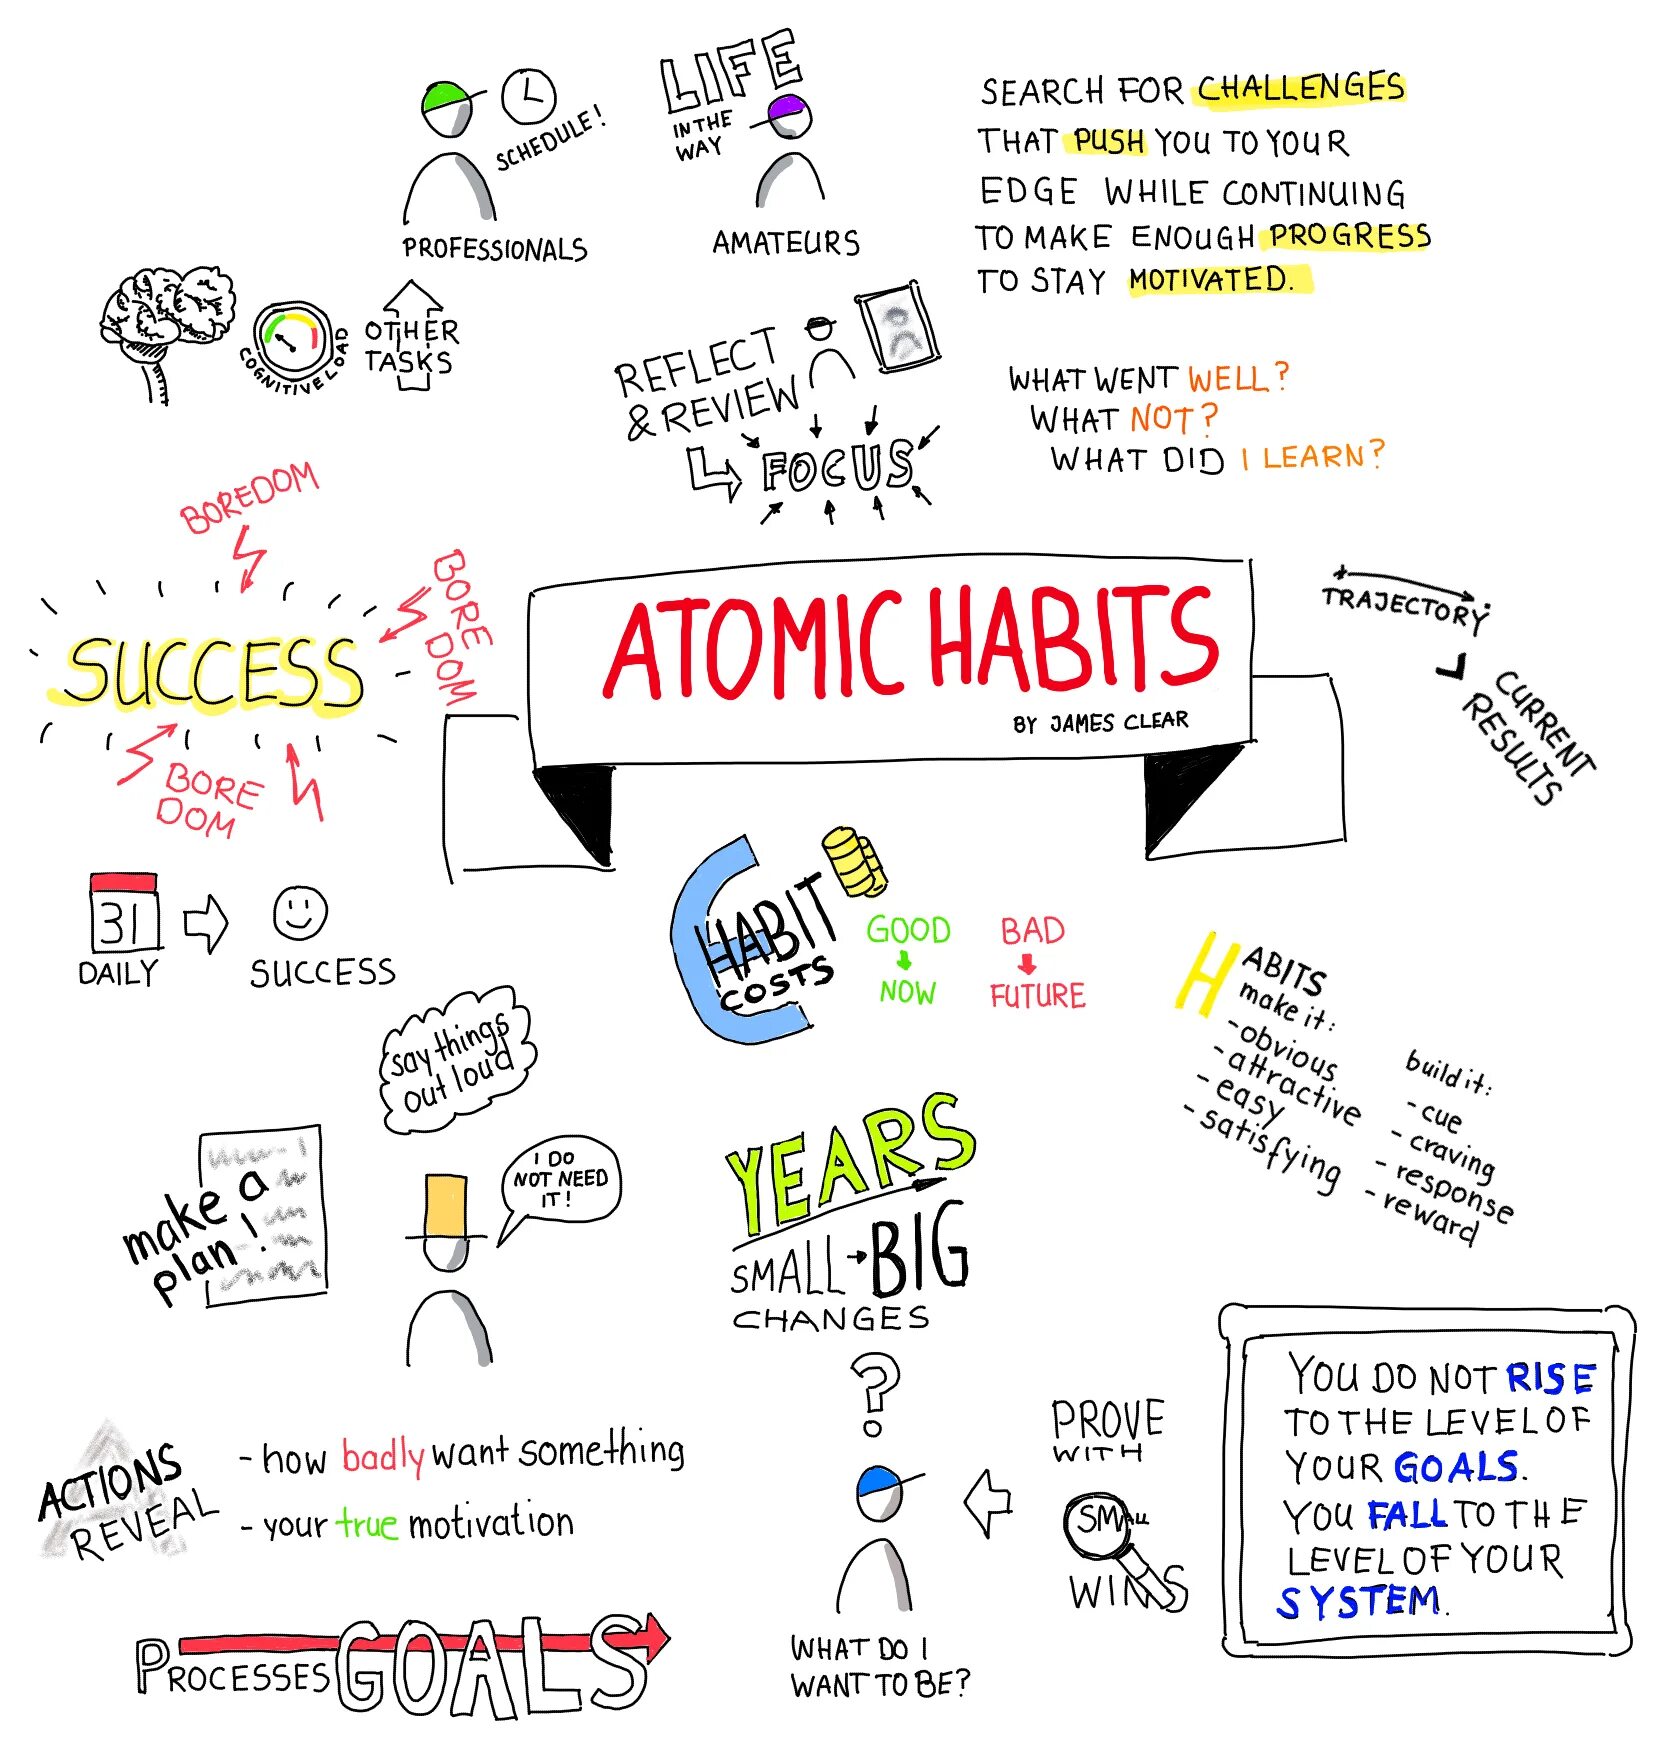 LIFE
IN THE
WAY
SCHEDULE!
PROFESSIONALS
AMATEURS
SEARCH FOR CHALLENGES
THAT PUSH YOU TO YOUR
EDGE WHILE CONTINUING
TO MAKE ENOUGH PROGRESS
TO STAY MOTIVATED.
COGNITIVE LOAD
OTHER
TASKS
REFLECT
& REVIEW
FOCUS
WHAT WENT WELL?
WHAT NOT?
WHAT DID I LEARN?
BOREDOM
BORE
DOM
SUCCESS
BORE
DOM
ATOMIC HABITS
BY JAMES CLEAR
TRAJECTORY
CURRENT
RESULTS
31
DAILY
SUCCESS
HABIT
COSTS
GOOD
NOW
BAD
FUTURE
HABITS
make it:
-obvious
-attractive
-easy
-satisfying
build it:
-cue
-craving
-response
-reward
say things
out loud
make a
plan!
I DO
NOT NEED
IT!
YEARS
SMALL BIG
CHANGES
?
ACTIONS
REVEAL
- how badly want something
- your true motivation
PROVE
WITH
SMALL
WINS
WHAT DO I
WANT TO BE?
YOU DO NOT RISE
TO THE LEVEL OF
YOUR GOALS.
YOU FALL TO THE
LEVEL OF YOUR
SYSTEM.
PROCESSES GOALS